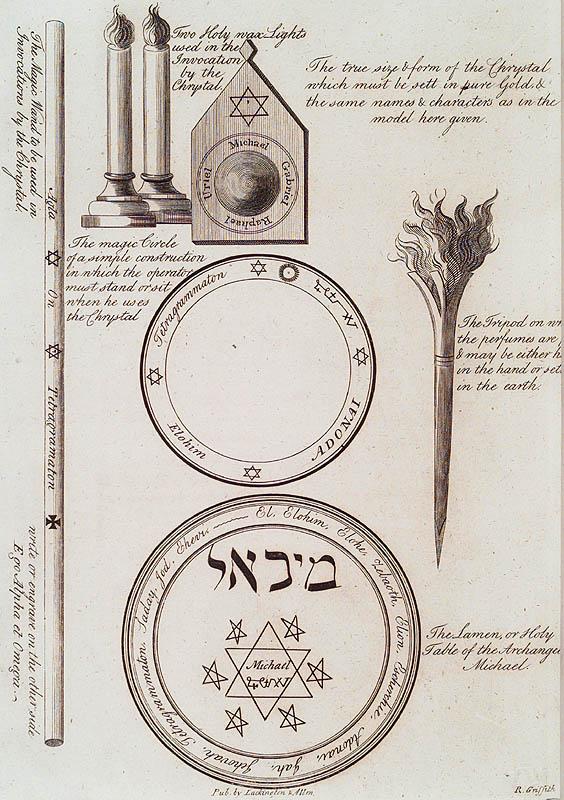 The Magic Wand to be used in
Invocations by the Chrystal.
Agla
On
Tetragramaton
write or engrave on the other side
Ego Alpha et Omega.
Two Holy wax Lights
used in the
Invocation
by the
Chrystal.
Michael
Gabriel
Raphael
Uriel
The true size & form of the Chrystal
which must be sett in pure Gold, &
the same names & characters as in the
model here given.
The magic Circle
of a simple construction
in which the operator
must stand or sit
when he uses
the Chrystal
Tetragrammaton
ADONAI
Elohim
The Tripod on
the perfumes are
& may be either
in the hand or set
in the earth.
El, Elohim, Elohe, Zebaoth, Elion, Adonai, Jah, Jehovah, Tetragrammaton, Saday, Jod,
מיכאל
Michael
The Lamen, or Holy
Table of the Archangel
Michael.
Pub. by Lackington & Allen.
R. Griffith